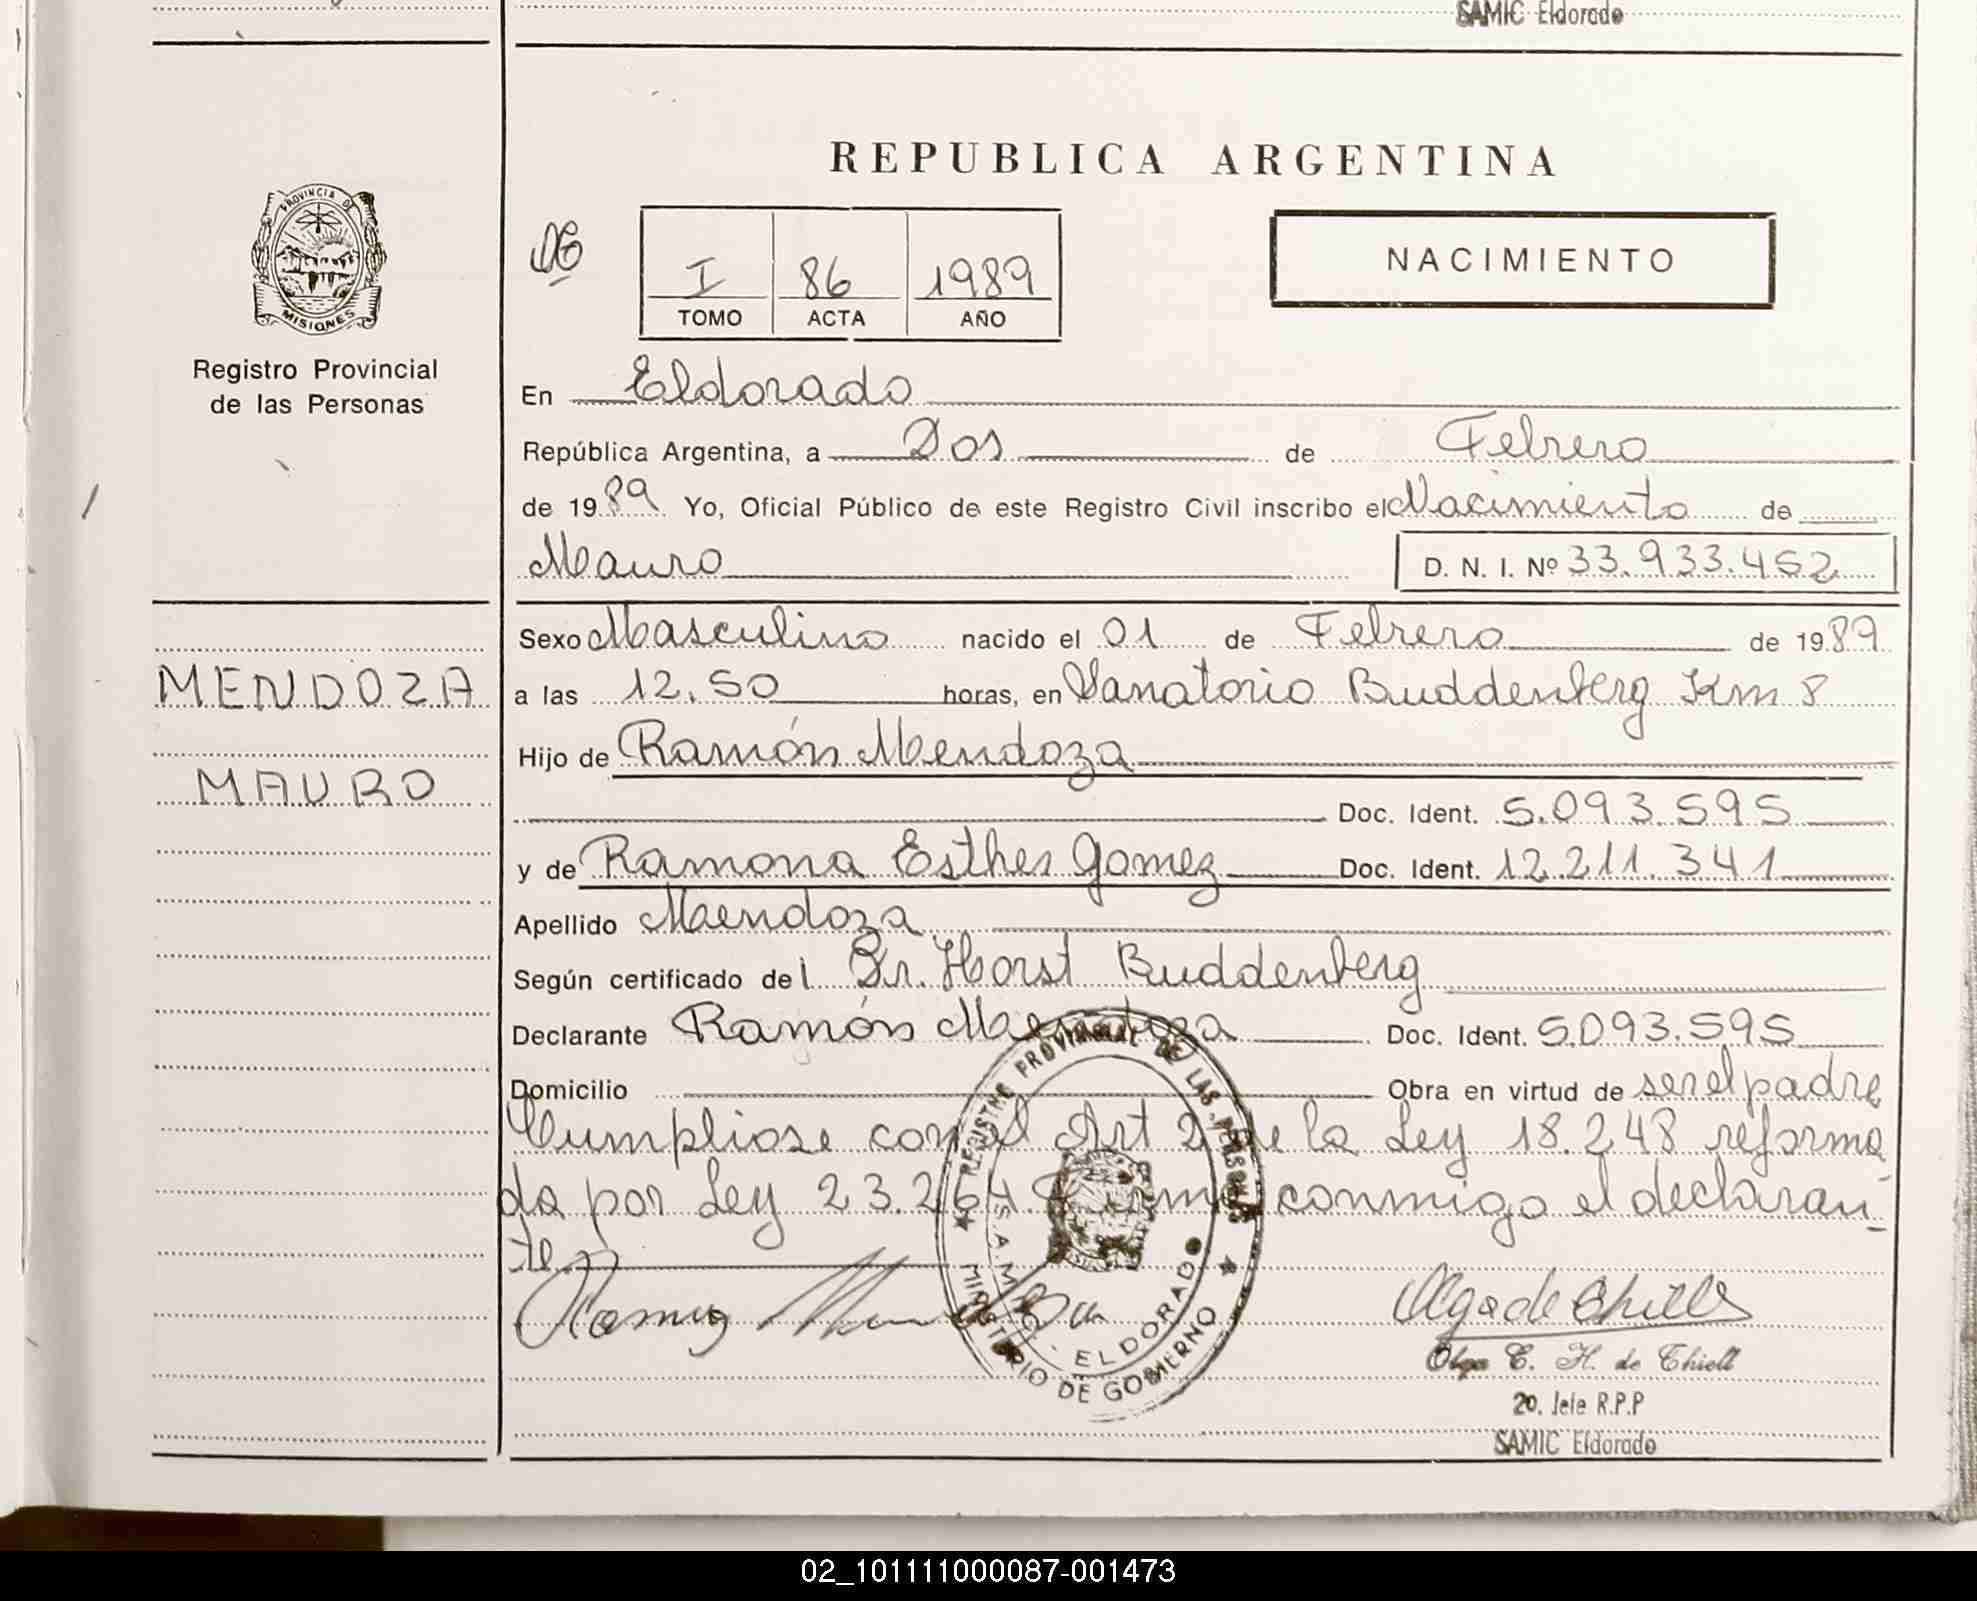 SAMIC Eldorado
REPUBLICA ARGENTINA
PROVINCIA DE
MISIONES
Registro Provincial
de las Personas
I 86 1989
TOMO ACTA AÑO
NACIMIENTO
En Eldorado
República Argentina, a Dos de Febrero
de 1989 Yo, Oficial Público de este Registro Civil inscribo el Nacimiento de
Mauro D. N. I. Nº 33.933.452
MENDOZA
MAURO
Sexo Masculino nacido el 01 de Febrero de 1989
a las 12.50 horas, en Sanatorio Buddenberg Km 8
Hijo de Ramón Mendoza
Doc. Ident. 5.093.595
y de Ramona Esther Gomez Doc. Ident. 12.211.341
Apellido Mendoza
Según certificado del Dr. Horst Buddenberg
Declarante Ramón Mendoza Doc. Ident. 5.093.595
Domicilio Obra en virtud de ser el padre
Cumpliose con el Art 2 de la Ley 18.248 reforma
da por Ley 23.264. Firma conmigo el declaran-
te
REGISTRO PROVINCIAL DE LAS PERSONAS
MINISTERIO DE GOBIERNO
S.A.M.I.C. - ELDORADO
Olga de Thiell
Olga E. H. de Thiell
20. Jefe R.P.P
SAMIC Eldorado
02_101111000087-001473